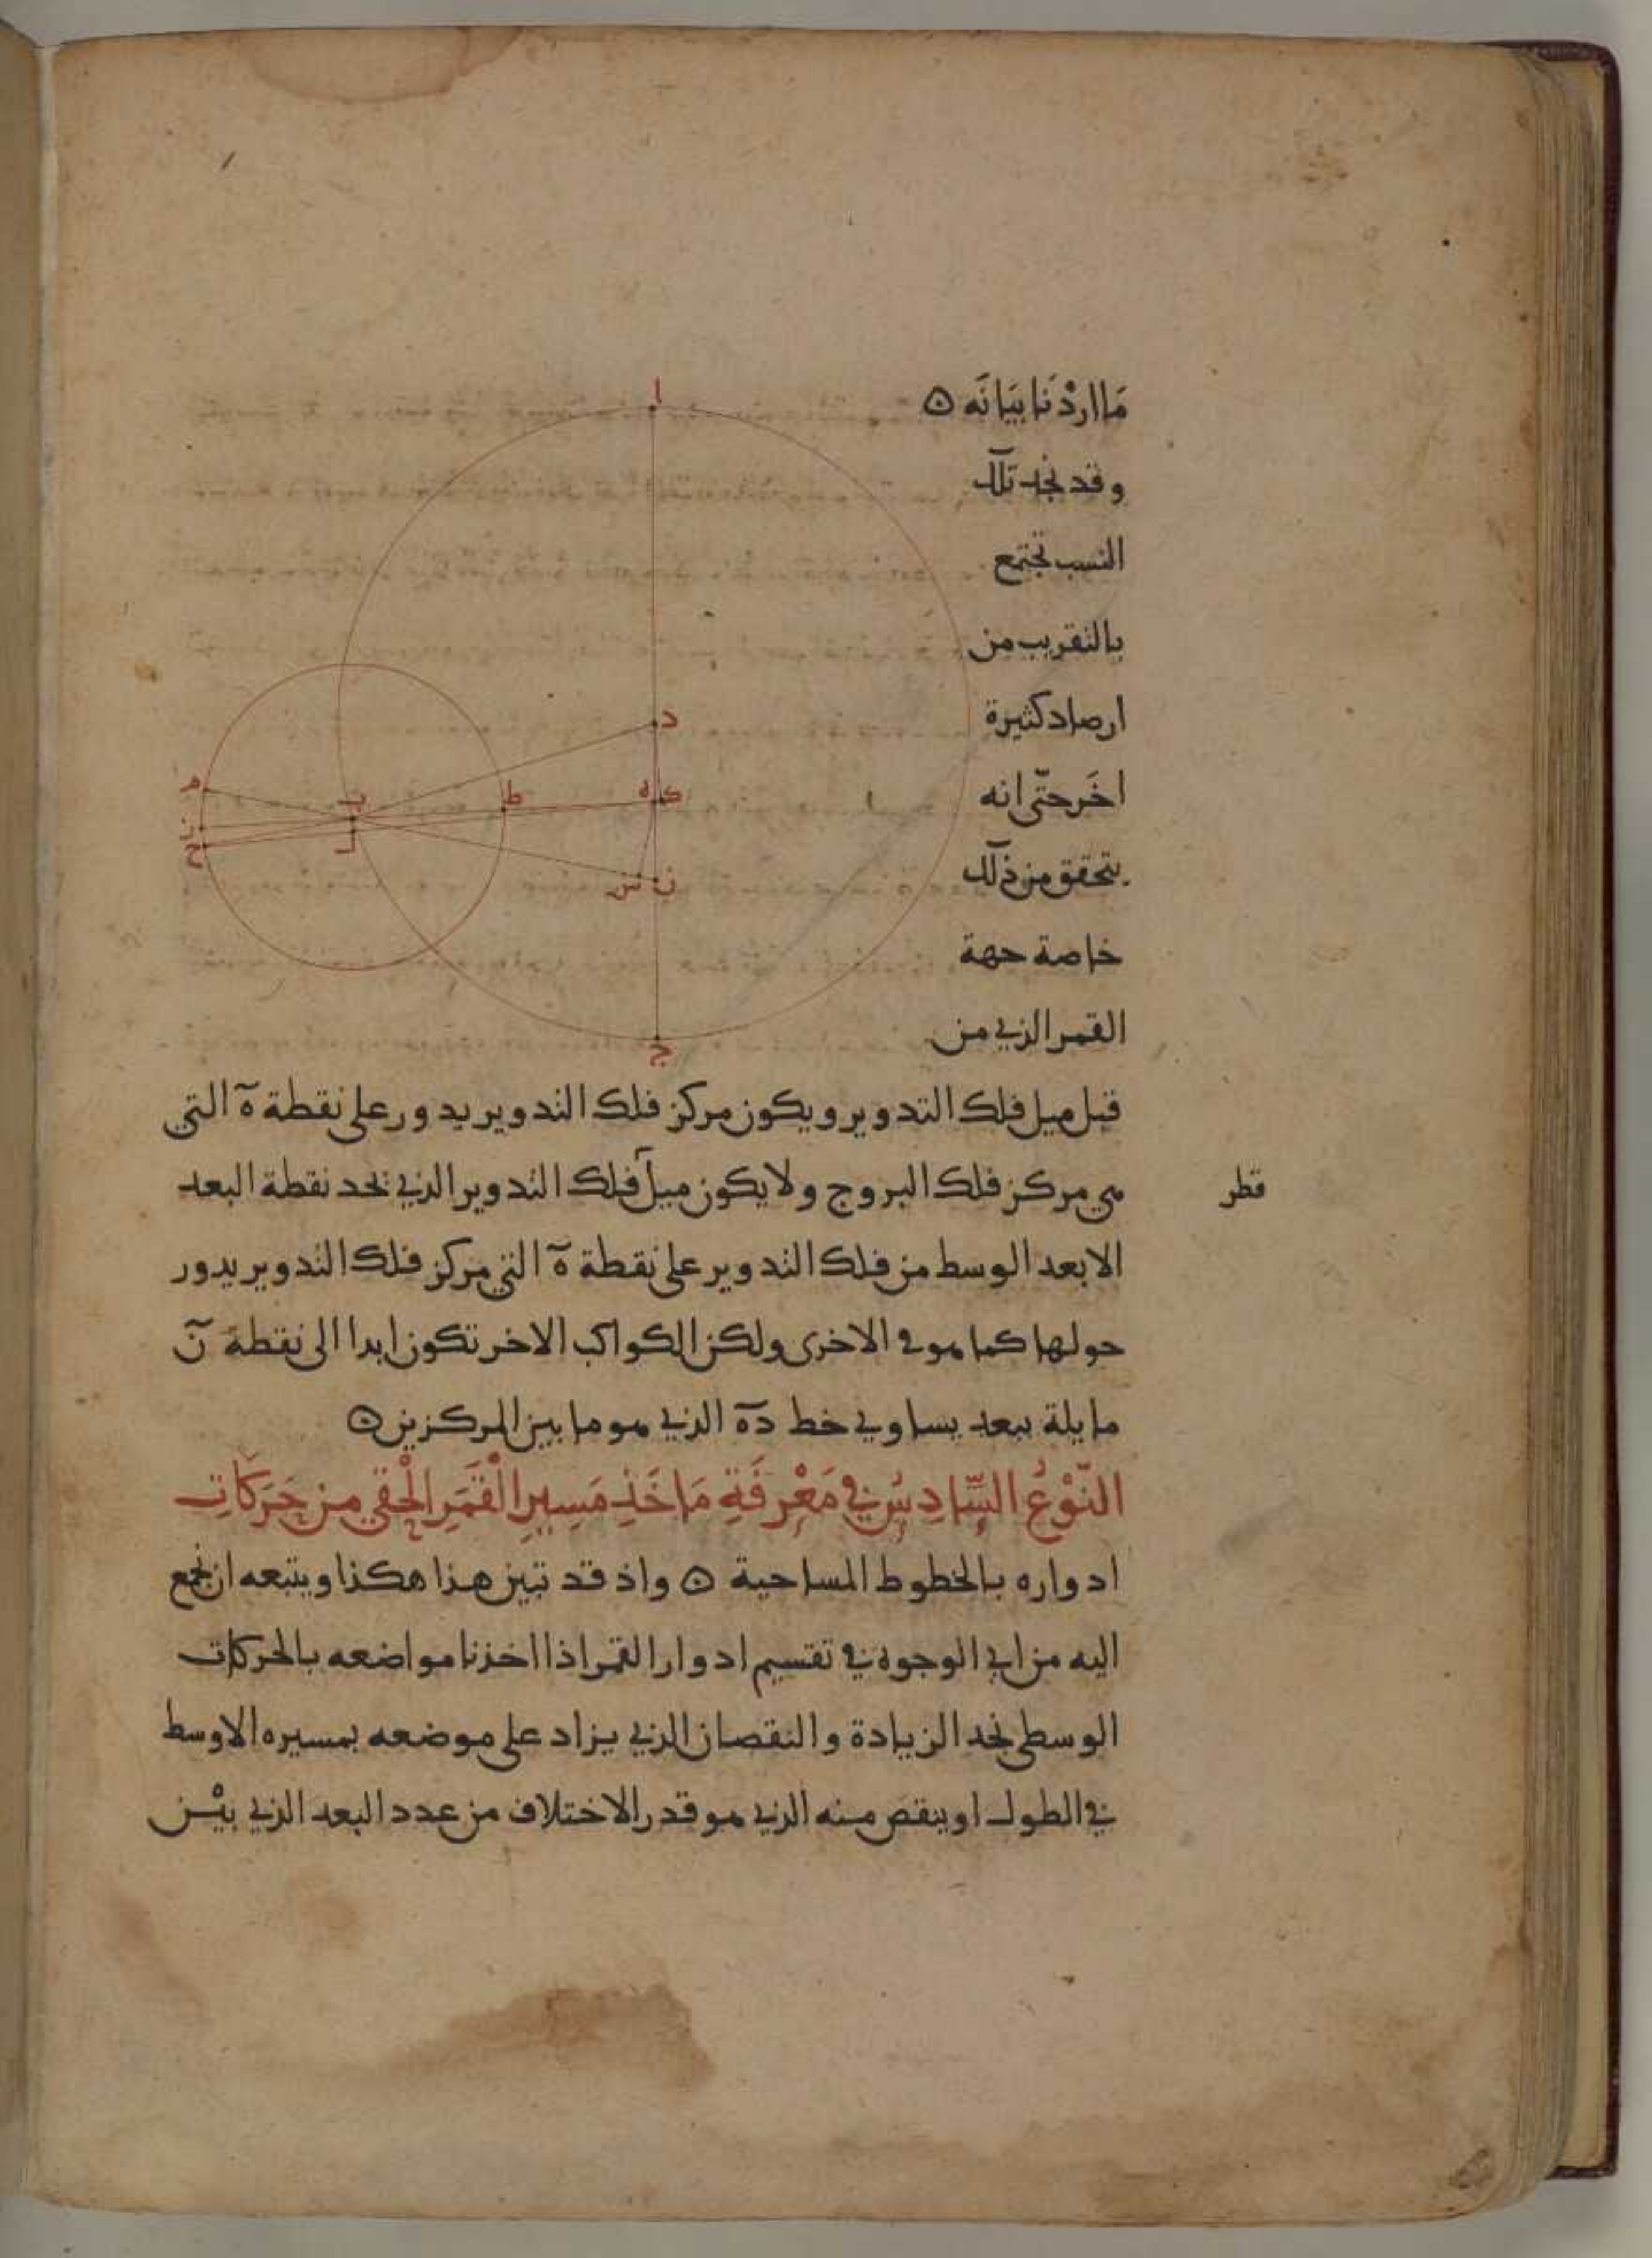 مَا اردْنَا بيَانَه ۞
وقد نجد تلك
النسب تجتمع
بالتقريب من
ارصاد كثيرة
اخَر حتّى انه
يتحقق من ذلك
خاصة جهة
القمر الذي من
قبل ميل فلك التدوير ويكون مركز فلك التدوير يدور على نقطة ه التي
هي مركز فلك البروج ولا يكون ميل فلك التدوير الذي نحد نقطة البعد
قطر
الابعد الوسط من فلك التدوير على نقطة ه التي مركز فلك التدوير يدور
حولها كما هو في الاخرى ولكن الكواكب الاخر تكون ابدا الى نقطة ن
مايلة ببعد يساوي خط ده الذي هو ما بين المركزين ۞
النّوْعُ السَّادِسُ في مَعْرِفَةِ مَاخَذِ مَسِيرِ الْقَمَرِ الْحَقِي مِن حَرَكَاتِ
ادواره بالخطوط المساحية ۞ واذ قد تبين هذا هكذا ويتبعه ان نجمع
اليه من اي الوجوه في تقسيم ادوار القمر اذا اخذنا مواضعه بالحركات
الوسطى نجد الزيادة والنقصان الذي يزاد على موضعه بمسيره الاوسط
في الطول او ينقص منه الذي هو قدر الاختلاف من عدد البعد الذي بيْن
ا
د
ه
ك
ط
ب
ل
م
ز
ح
س
ن
ج